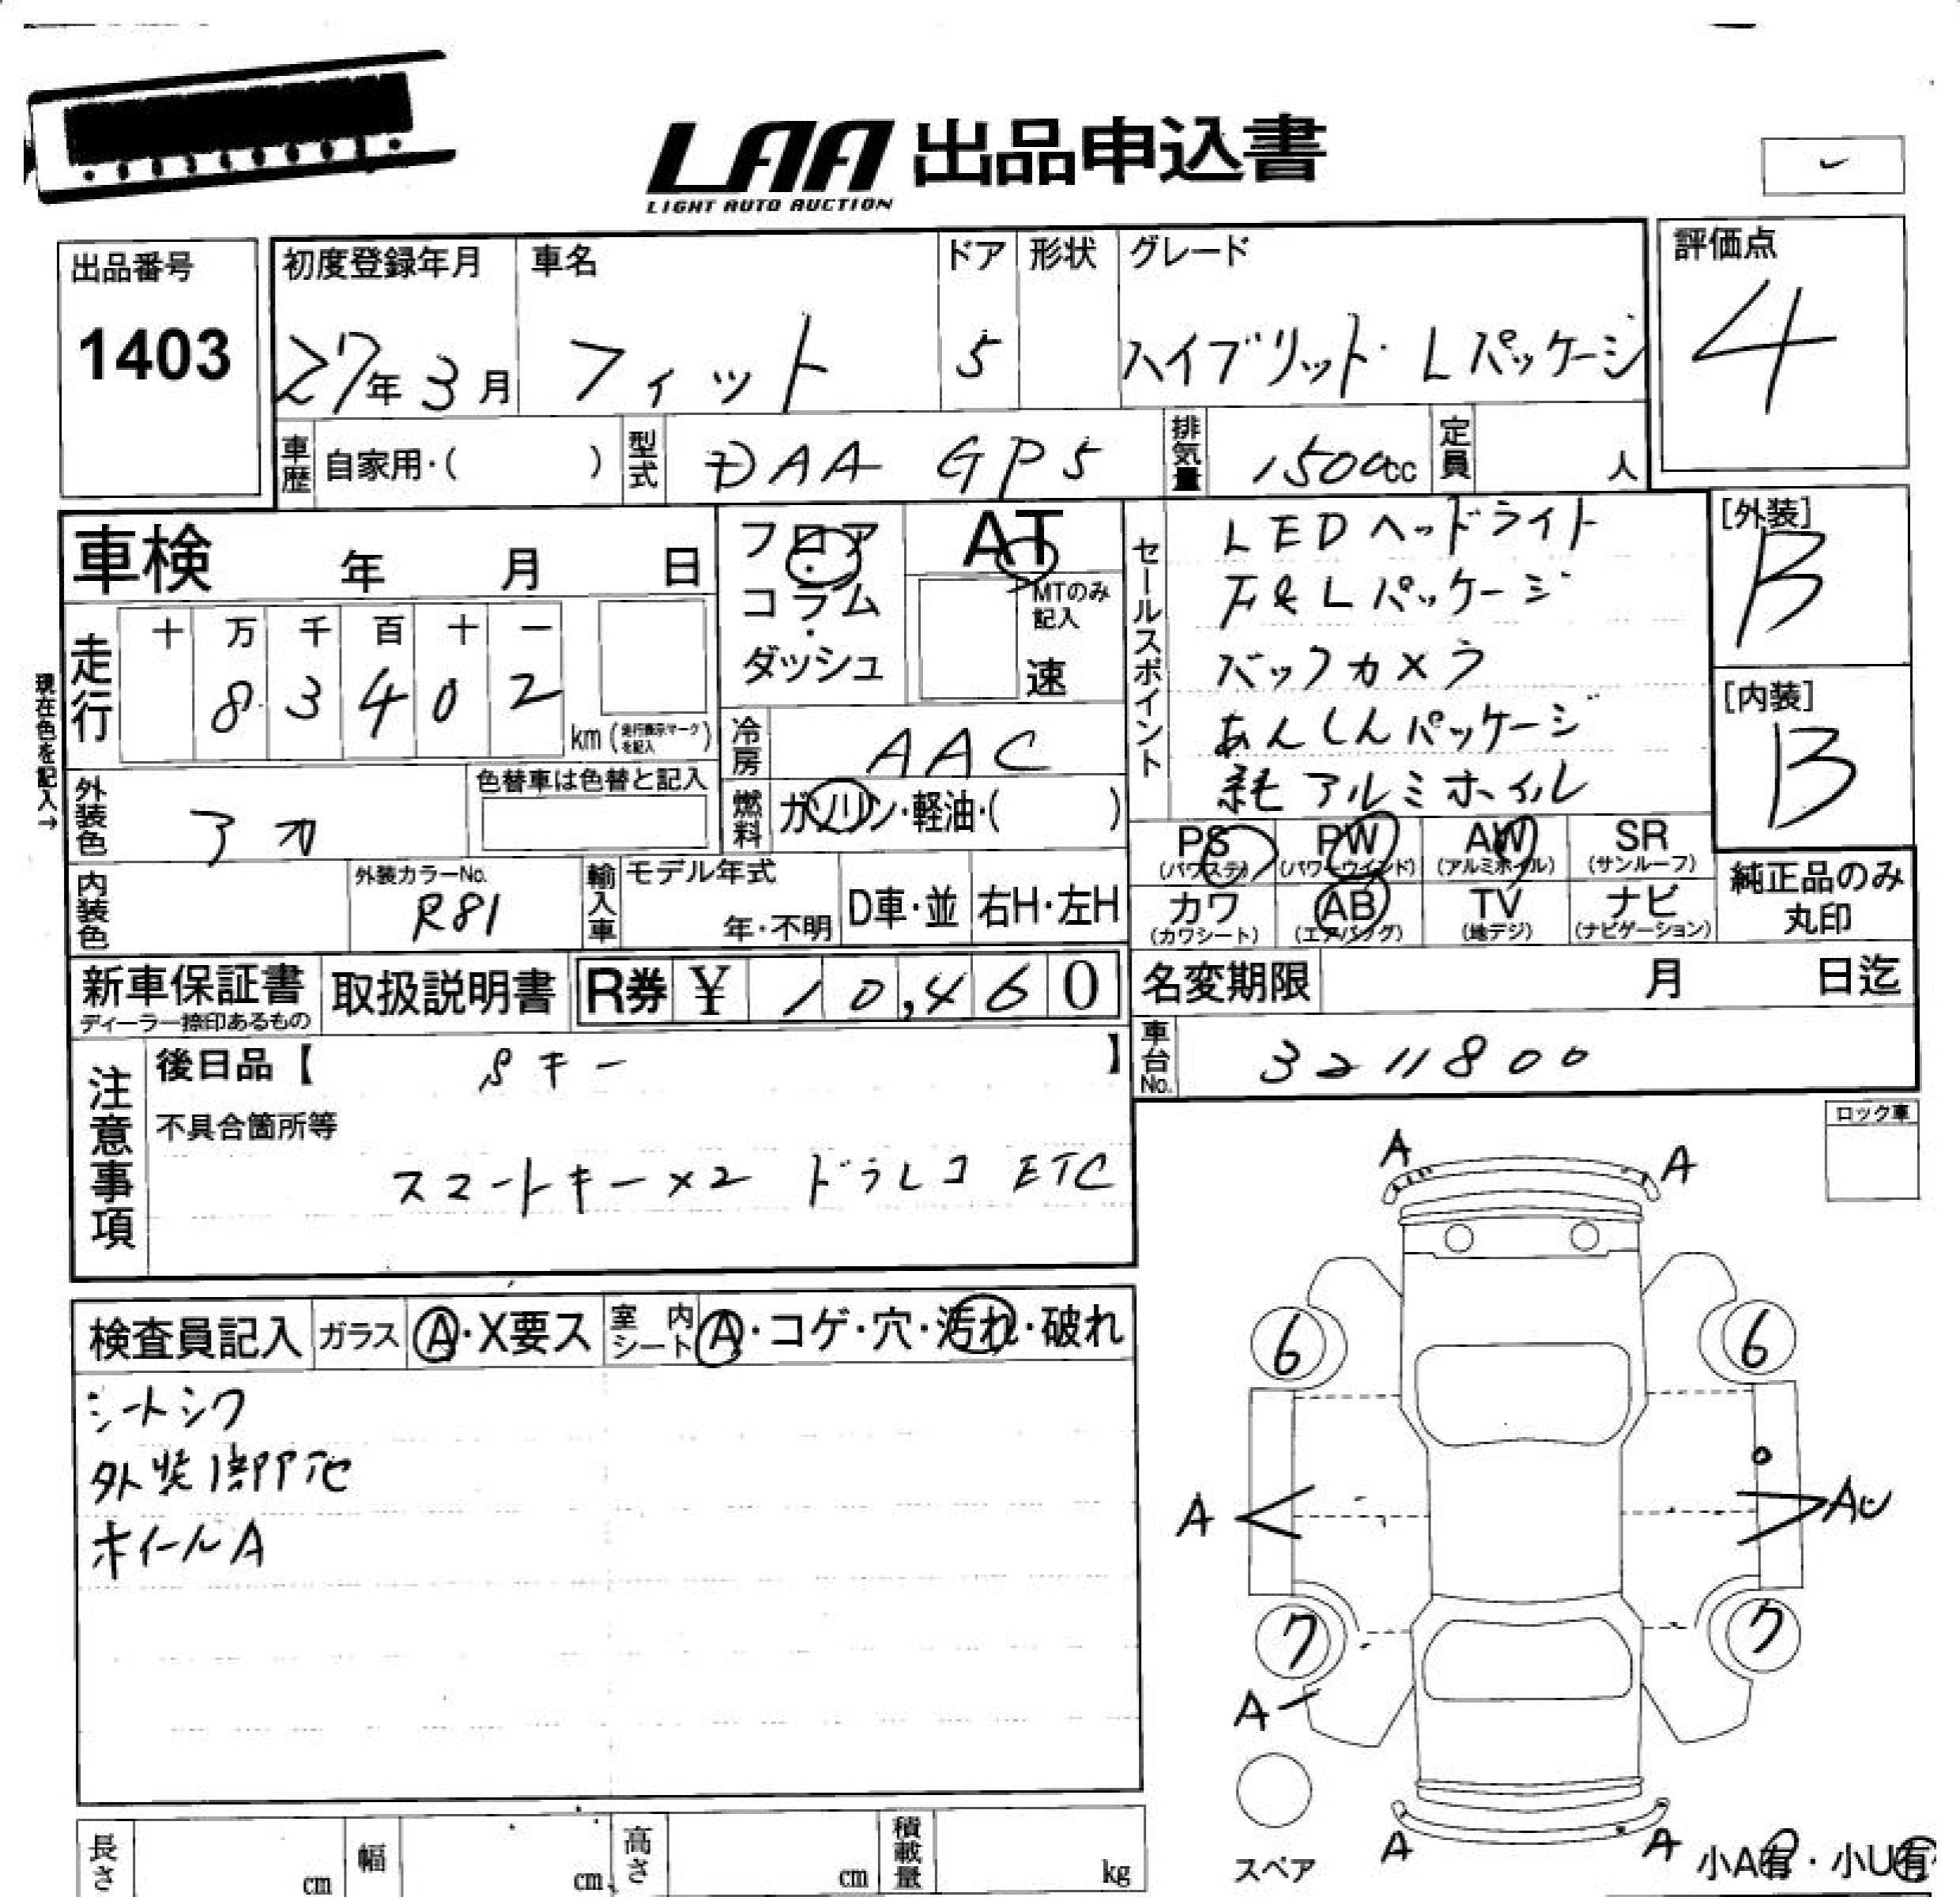 LAA 出品申込書
LIGHT AUTO AUCTION
出品番号
1403
初度登録年月 車名 ドア 形状 グレード
27年 3月 フィット 5 ハイブリット・Lパッケージ
評価点
4
車歴 自家用・( ) 型式 DAA GP5 排気量 1500cc 定員 人
車検 年 月 日
フロア・コラム・ダッシュ
AT
MTのみ記入
速
セールスポイント
LEDヘッドライト
F&Lパッケージ
バックカメラ
あんしんパッケージ
純アルミホイル
[外装]
B
[内装]
B
現在色を記入→
走行
十 万 千 百 十 一
8 3 4 0 2
km (走行表示マークを記入)
冷房 AAC
外装色 アカ
色替車は色替と記入
燃料 ガソリン・軽油・( )
PS (パワステ) PW (パワーウインド) AW (アルミホイル) SR (サンルーフ)
カワ (カワシート) AB (エアバッグ) TV (地デジ) ナビ (ナビゲーション)
純正品のみ丸印
内装色
外装カラーNo.
R81
輸入車 モデル年式 年・不明 D車・並 右H・左H
新車保証書
ディーラー捺印あるもの
取扱説明書
R券 ¥ 10,460
名変期限 月 日迄
車台No. 3211800
注意事項
後日品【 Sキー 】
不具合箇所等
スマートキー×2 ドラレコ ETC
ロック車
検査員記入 ガラス A・X要ス 室内シート A・コゲ・穴・汚れ・破れ
シートシワ
外装
ホイールA
A A
6 6
A AU
7 7
A
スペア
A A
小A有・小U有
長さ cm 幅 cm 高さ cm 積載量 kg